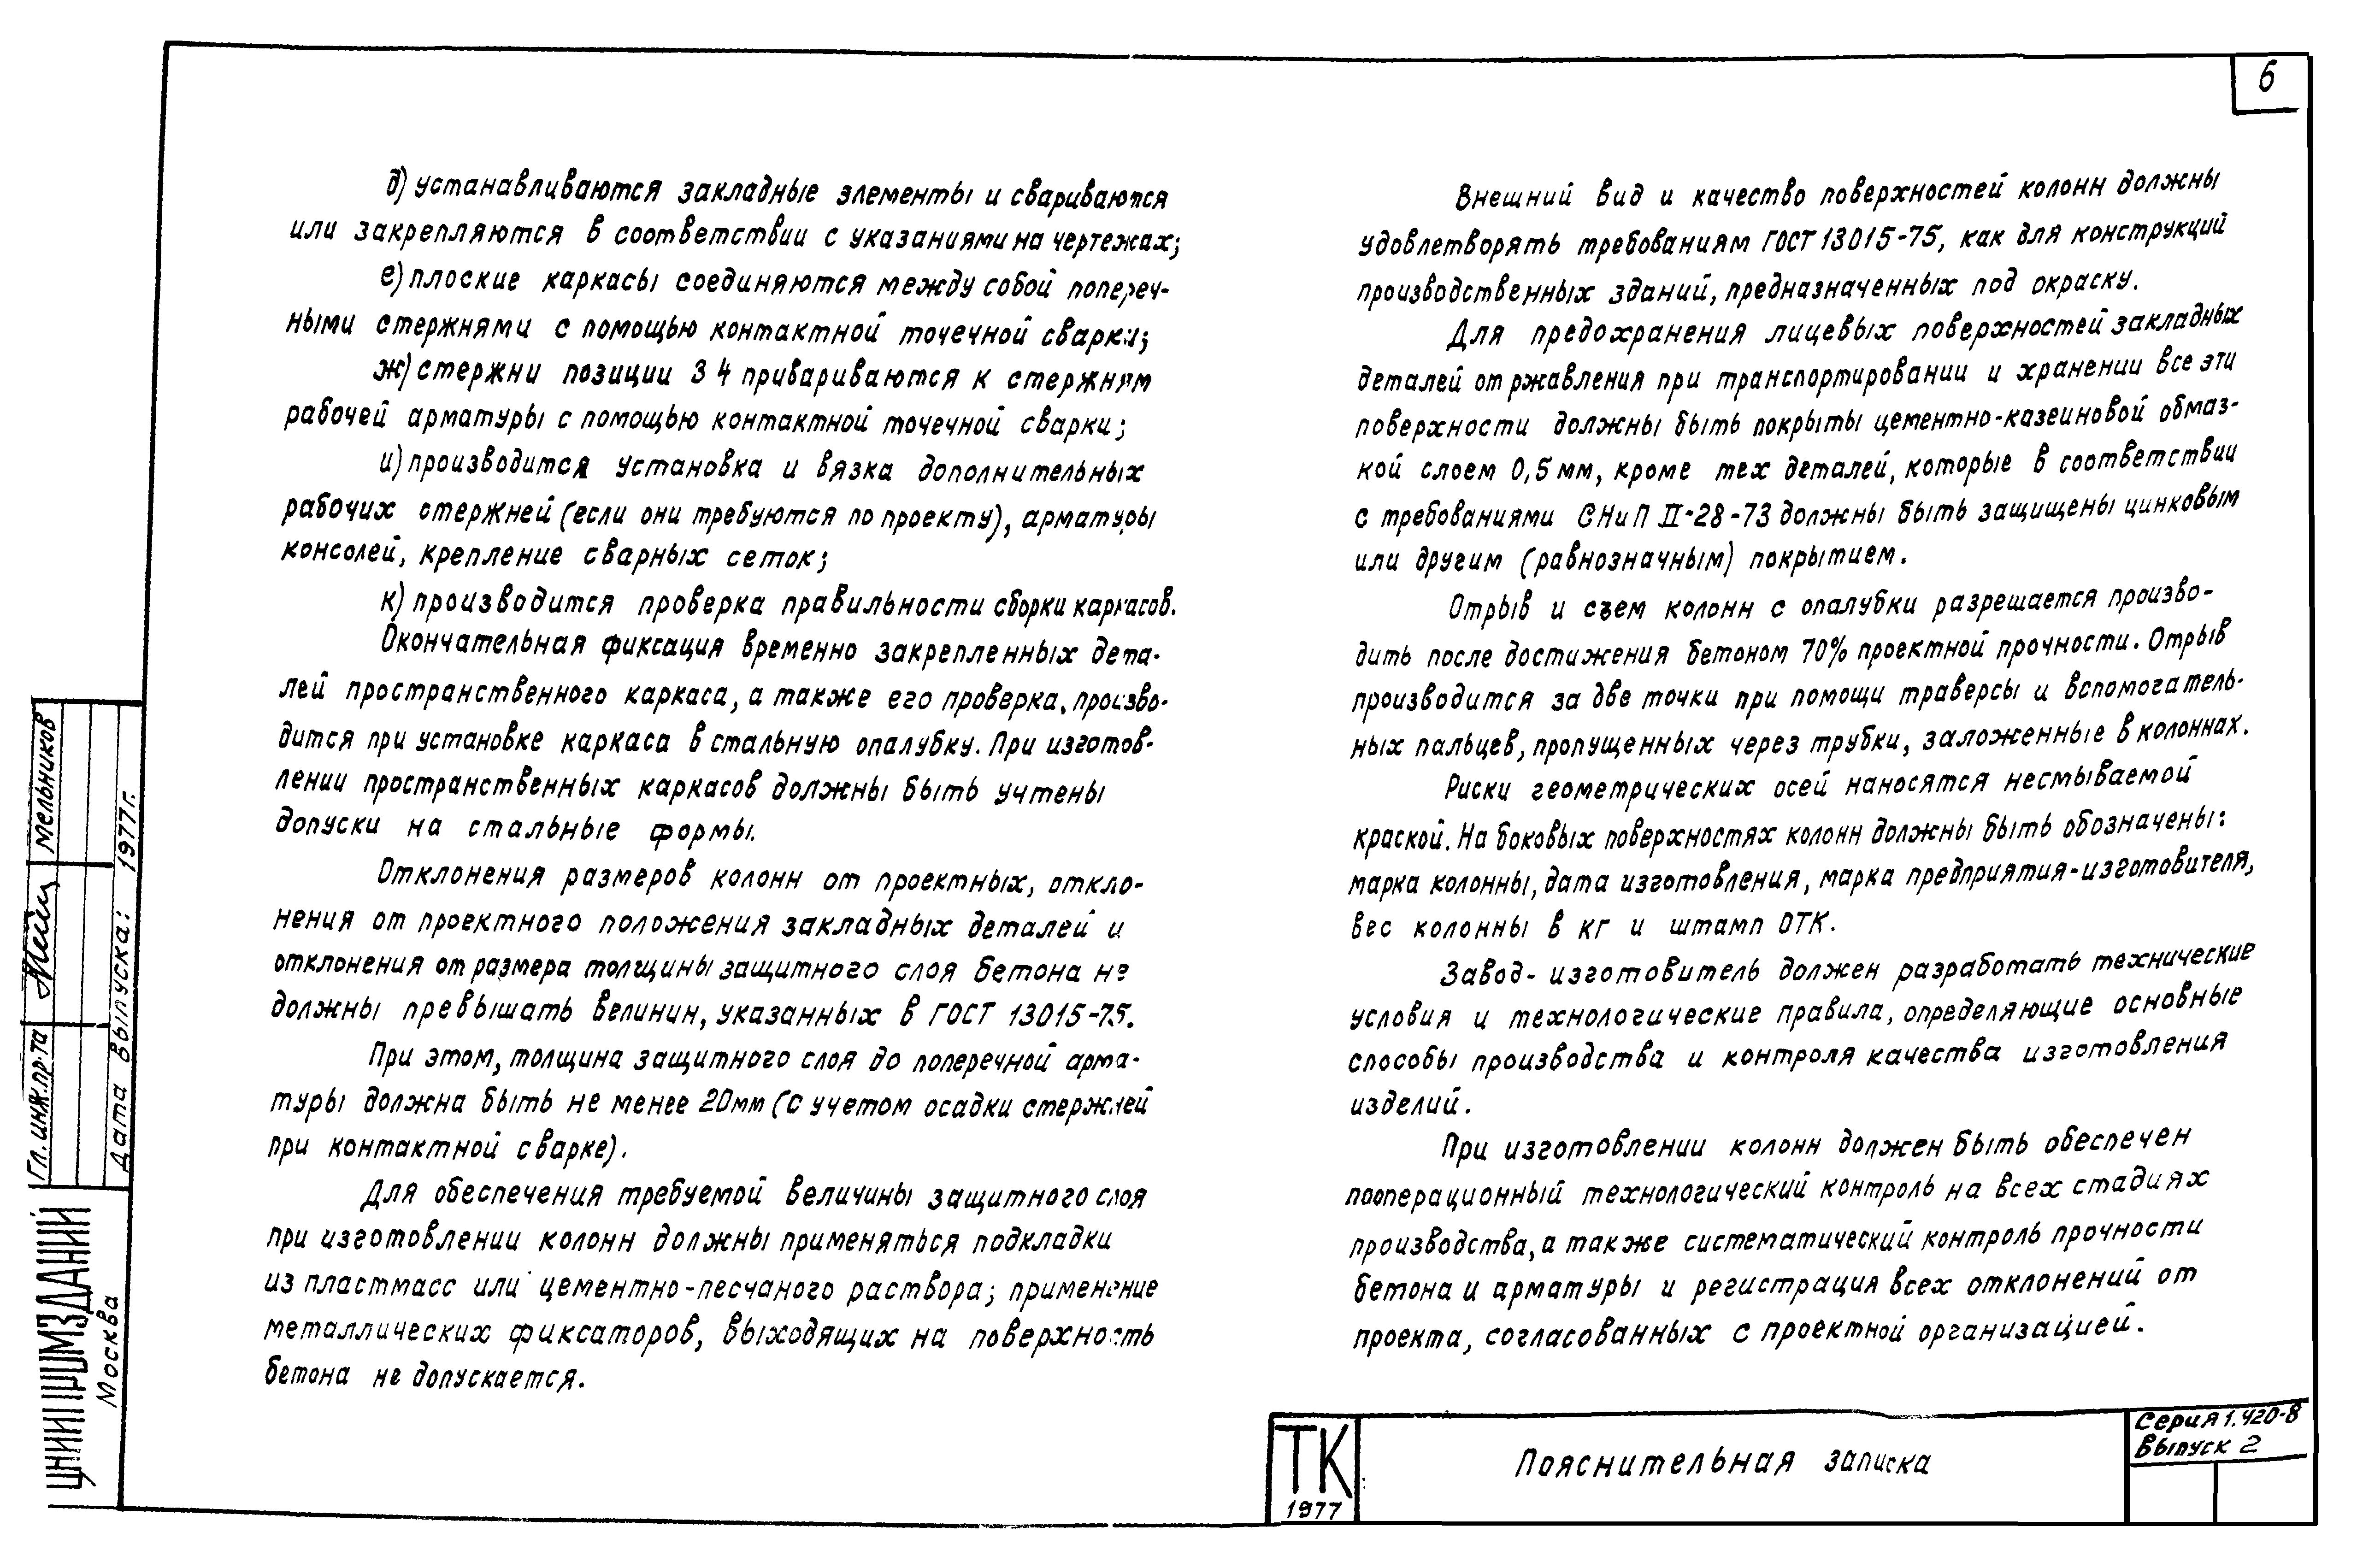 6
д) устанавливаются закладные элементы и свариваются
или закрепляются в соответствии с указаниями на чертежах;
е) плоские каркасы соединяются между собой попереч-
ными стержнями с помощью контактной точечной сварки;
ж) стержни позиции 34 привариваются к стержням
рабочей арматуры с помощью контактной точечной сварки;
и) производится установка и вязка дополнительных
рабочих стержней (если они требуются по проекту), арматуры
консолей, крепление сварных сеток;
к) производится проверка правильности сборки каркасов.
Окончательная фиксация временно закрепленных дета-
лей пространственного каркаса, а также его проверка, произво-
дится при установке каркаса в стальную опалубку. При изготов-
лении пространственных каркасов должны быть учтены
допуски на стальные формы.
Отклонения размеров колонн от проектных, откло-
нения от проектного положения закладных деталей и
отклонения от размера толщины защитного слоя бетона не
должны превышать велинин, указанных в ГОСТ 13015-75.
При этом, толщина защитного слоя до поперечной арма-
туры должна быть не менее 20мм (с учетом осадки стержней
при контактной сварке).
Для обеспечения требуемой величины защитного слоя
при изготовлении колонн должны применяться подкладки
из пластмасс или цементно-песчаного раствора; применение
металлических фиксаторов, выходящих на поверхность
бетона не допускается.
Внешний вид и качество поверхностей колонн должны
удовлетворять требованиям ГОСТ 13015-75, как для конструкций
производственных зданий, предназначенных под окраску.
Для предохранения лицевых поверхностей закладных
деталей от ржавления при транспортировании и хранении все эти
поверхности должны быть покрыты цементно-казеиновой обмаз-
кой слоем 0,5 мм, кроме тех деталей, которые в соответствии
с требованиями СНиП II-28-73 должны быть защищены цинковым
или другим (равнозначным) покрытием.
Отрыв и съем колонн с опалубки разрешается произво-
дить после достижения бетоном 70% проектной прочности. Отрыв
производится за две точки при помощи траверсы и вспомогатель-
ных пальцев, пропущенных через трубки, заложенные в колоннах.
Риски геометрических осей наносятся несмываемой
краской. На боковых поверхностях колонн должны быть обозначены:
марка колонны, дата изготовления, марка предприятия-изготовителя,
вес колонны в кг и штамп ОТК.
Завод-изготовитель должен разработать технические
условия и технологические правила, определяющие основные
способы производства и контроля качества изготовления
изделий.
При изготовлении колонн должен быть обеспечен
пооперационный технологический контроль на всех стадиях
производства, а также систематический контроль прочности
бетона и арматуры и регистрация всех отклонений от
проекта, согласованных с проектной организацией.
Гл. инж. пр-та Мельников
Дата выпуска: 1977г.
ЦНИИПРОМЗДАНИЙ
Москва
ТК
1977
Пояснительная записка
Серия 1.420-8
Выпуск 2